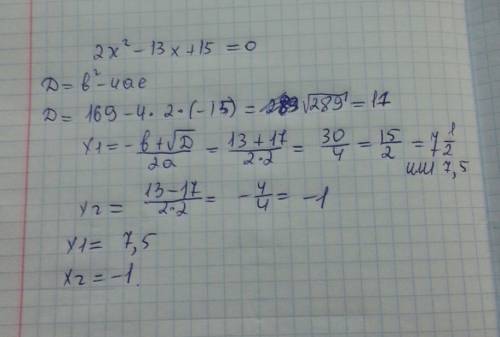 2x² - 13x + 15 = 0
D = b² - 4ac
D = 169 - 4 · 2 · (-15) = √289 = 17
x1 = - b + √D / 2a = 13 + 17 / 2·2 = 30/4 = 15/2 = 7 1/2
или 7,5
x2 = 13 - 17 / 2·2 = - 4/4 = -1
x1 = 7,5
x2 = -1.